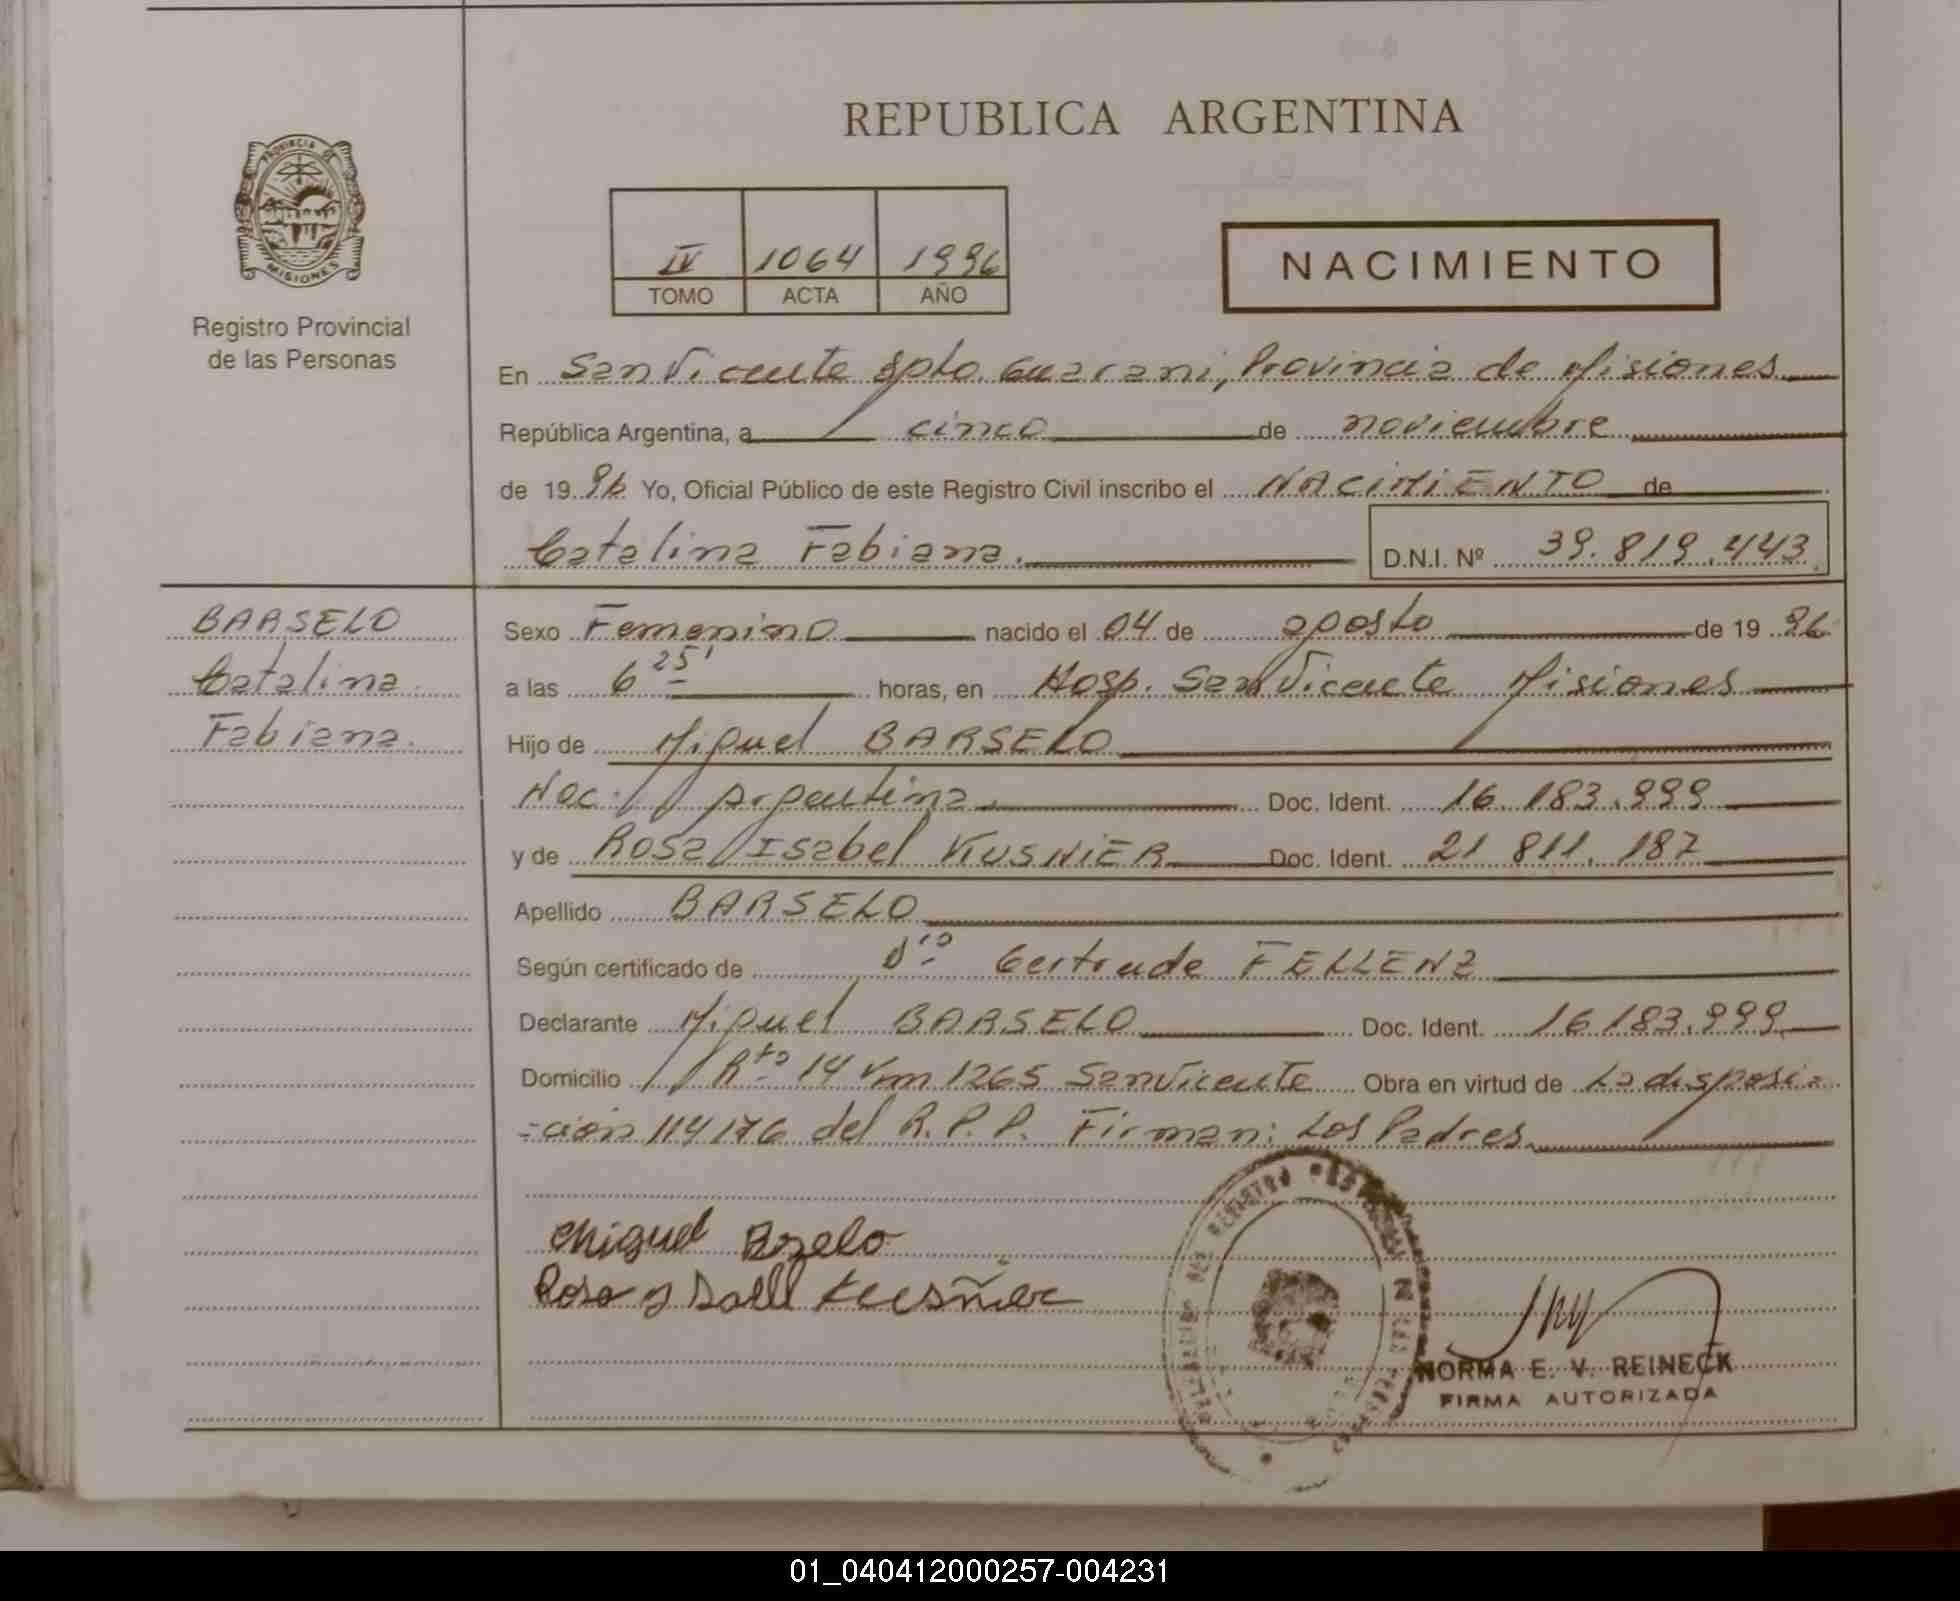 REPUBLICA ARGENTINA
PROVINCIA DE
MISIONES
Registro Provincial
de las Personas
IV 1064 1996
TOMO ACTA AÑO
NACIMIENTO
En San Vicente Dpto. Guarani, Provincia de Misiones
República Argentina, a cinco de noviembre
de 1996 Yo, Oficial Público de este Registro Civil inscribo el NACIMIENTO de
Catalina Fabiana.
D.N.I. Nº 39.819.443
BARSELO
Catalina
Fabiana.
Sexo Femenino nacido el 04 de agosto de 1996
a las 6 25' horas, en Hosp. San Vicente Misiones
Hijo de Miguel BARSELO
Nac. Argentina. Doc. Ident. 16.183.999
y de Rosa Isabel KUSNIER Doc. Ident. 21 811.187
Apellido BARSELO
Según certificado de Gertrude FELLENZ
Declarante Miguel BARSELO Doc. Ident. 16183.999
Domicilio Rta 14 Km 1265 San Vicente Obra en virtud de La disposi=
=cion 114176 del R.P.P. Firman: Los Padres
Miguel Bzelo
Rosa Kusñier
NORMA E. V. REINECK
FIRMA AUTORIZADA
01_040412000257-004231